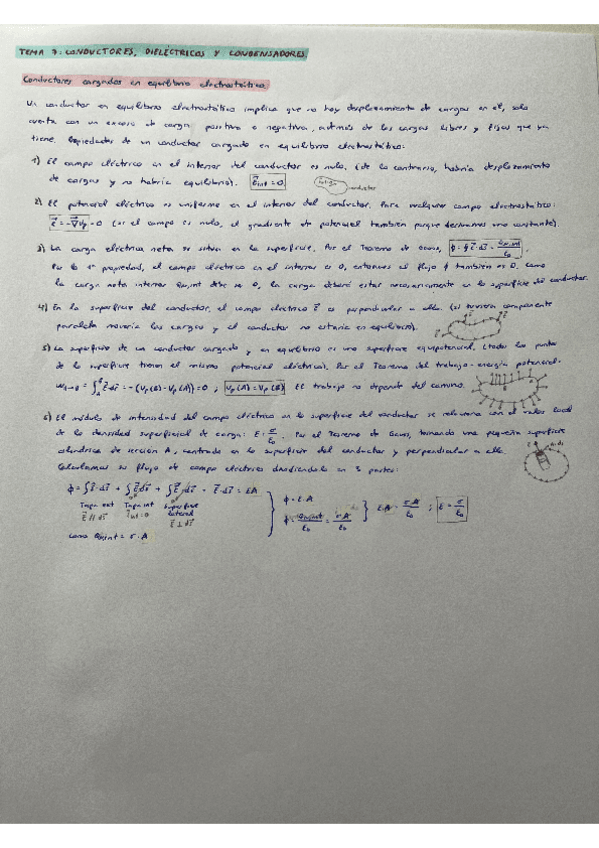 TEMA 7: CONDUCTORES, DIELÉCTRICOS Y CONDENSADORES.
Conductores cargados en equilibrio electrostático.
Un conductor en equilibrio electrostático implica que no hay desplazamiento de cargas en él, solo
cuenta con un exceso de carga positiva o negativa, además de las cargas libres y fijas que ya
tiene. Propiedades de un conductor cargado en equilibrio electrostático:
1) El campo eléctrico en el interior del conductor es nulo. (de lo contrario, habría desplazamiento
de cargas y no habría equilibrio). E⃗int = 0. conductor
2) El potencial eléctrico es uniforme en el interior del conductor. Para cualquier campo electrostático:
E⃗ = -∇⃗Vp = 0 (si el campo es nulo, el gradiente de potencial también porque derivamos una constante).
3) La carga eléctrica neta se sitúa en la superficie. Por el Teorema de Gauss, ϕ = ∮ E⃗·ds⃗ = Qint/ε₀
Por la 1ª propiedad, el campo eléctrico en el interior es 0, entonces el flujo ϕ también es 0. Como
la carga neta interior Qint debe ser 0, la carga deberá estar necesariamente en la superficie del conductor.
4) En la superficie del conductor, el campo eléctrico E⃗ es perpendicular a ella. (si tuviera componente
paralela movería las cargas y el conductor no estaría en equilibrio).
5) La superficie de un conductor cargado y en equilibrio es una superficie equipotencial. (todos los puntos
de la superficie tienen el mismo potencial eléctrico). Por el Teorema del trabajo-energía potencial:
W A→B = ∫ E⃗·dr⃗ = -(Vp(B) - Vp(A)) = 0 ; Vp(A) = Vp(B) El trabajo no depende del camino.
6) El módulo de intensidad del campo eléctrico en la superficie del conductor se relaciona con el valor local
de la densidad superficial de carga: E = σ/ε₀. Por el Teorema de Gauss, tomando una pequeña superficie
cilíndrica de sección A, centrada en la superficie del conductor y perpendicular a ella.
Calculamos su flujo de campo eléctrico dividiéndolo en 3 partes:
ϕ = ∫E⃗·ds⃗ + ∫E⃗·ds⃗ + ∫E⃗·ds⃗ = E⃗·ds⃗ = EA
Tapa ext Tapa int superficie lateral
E⃗ ∥ ds⃗ E⃗int = 0 E⃗ ⊥ ds⃗
como Qint = σ·A
ϕ = E·A
ϕ = Qint/ε₀ = σ·A/ε₀
E·A = σ·A/ε₀ ; E = σ/ε₀